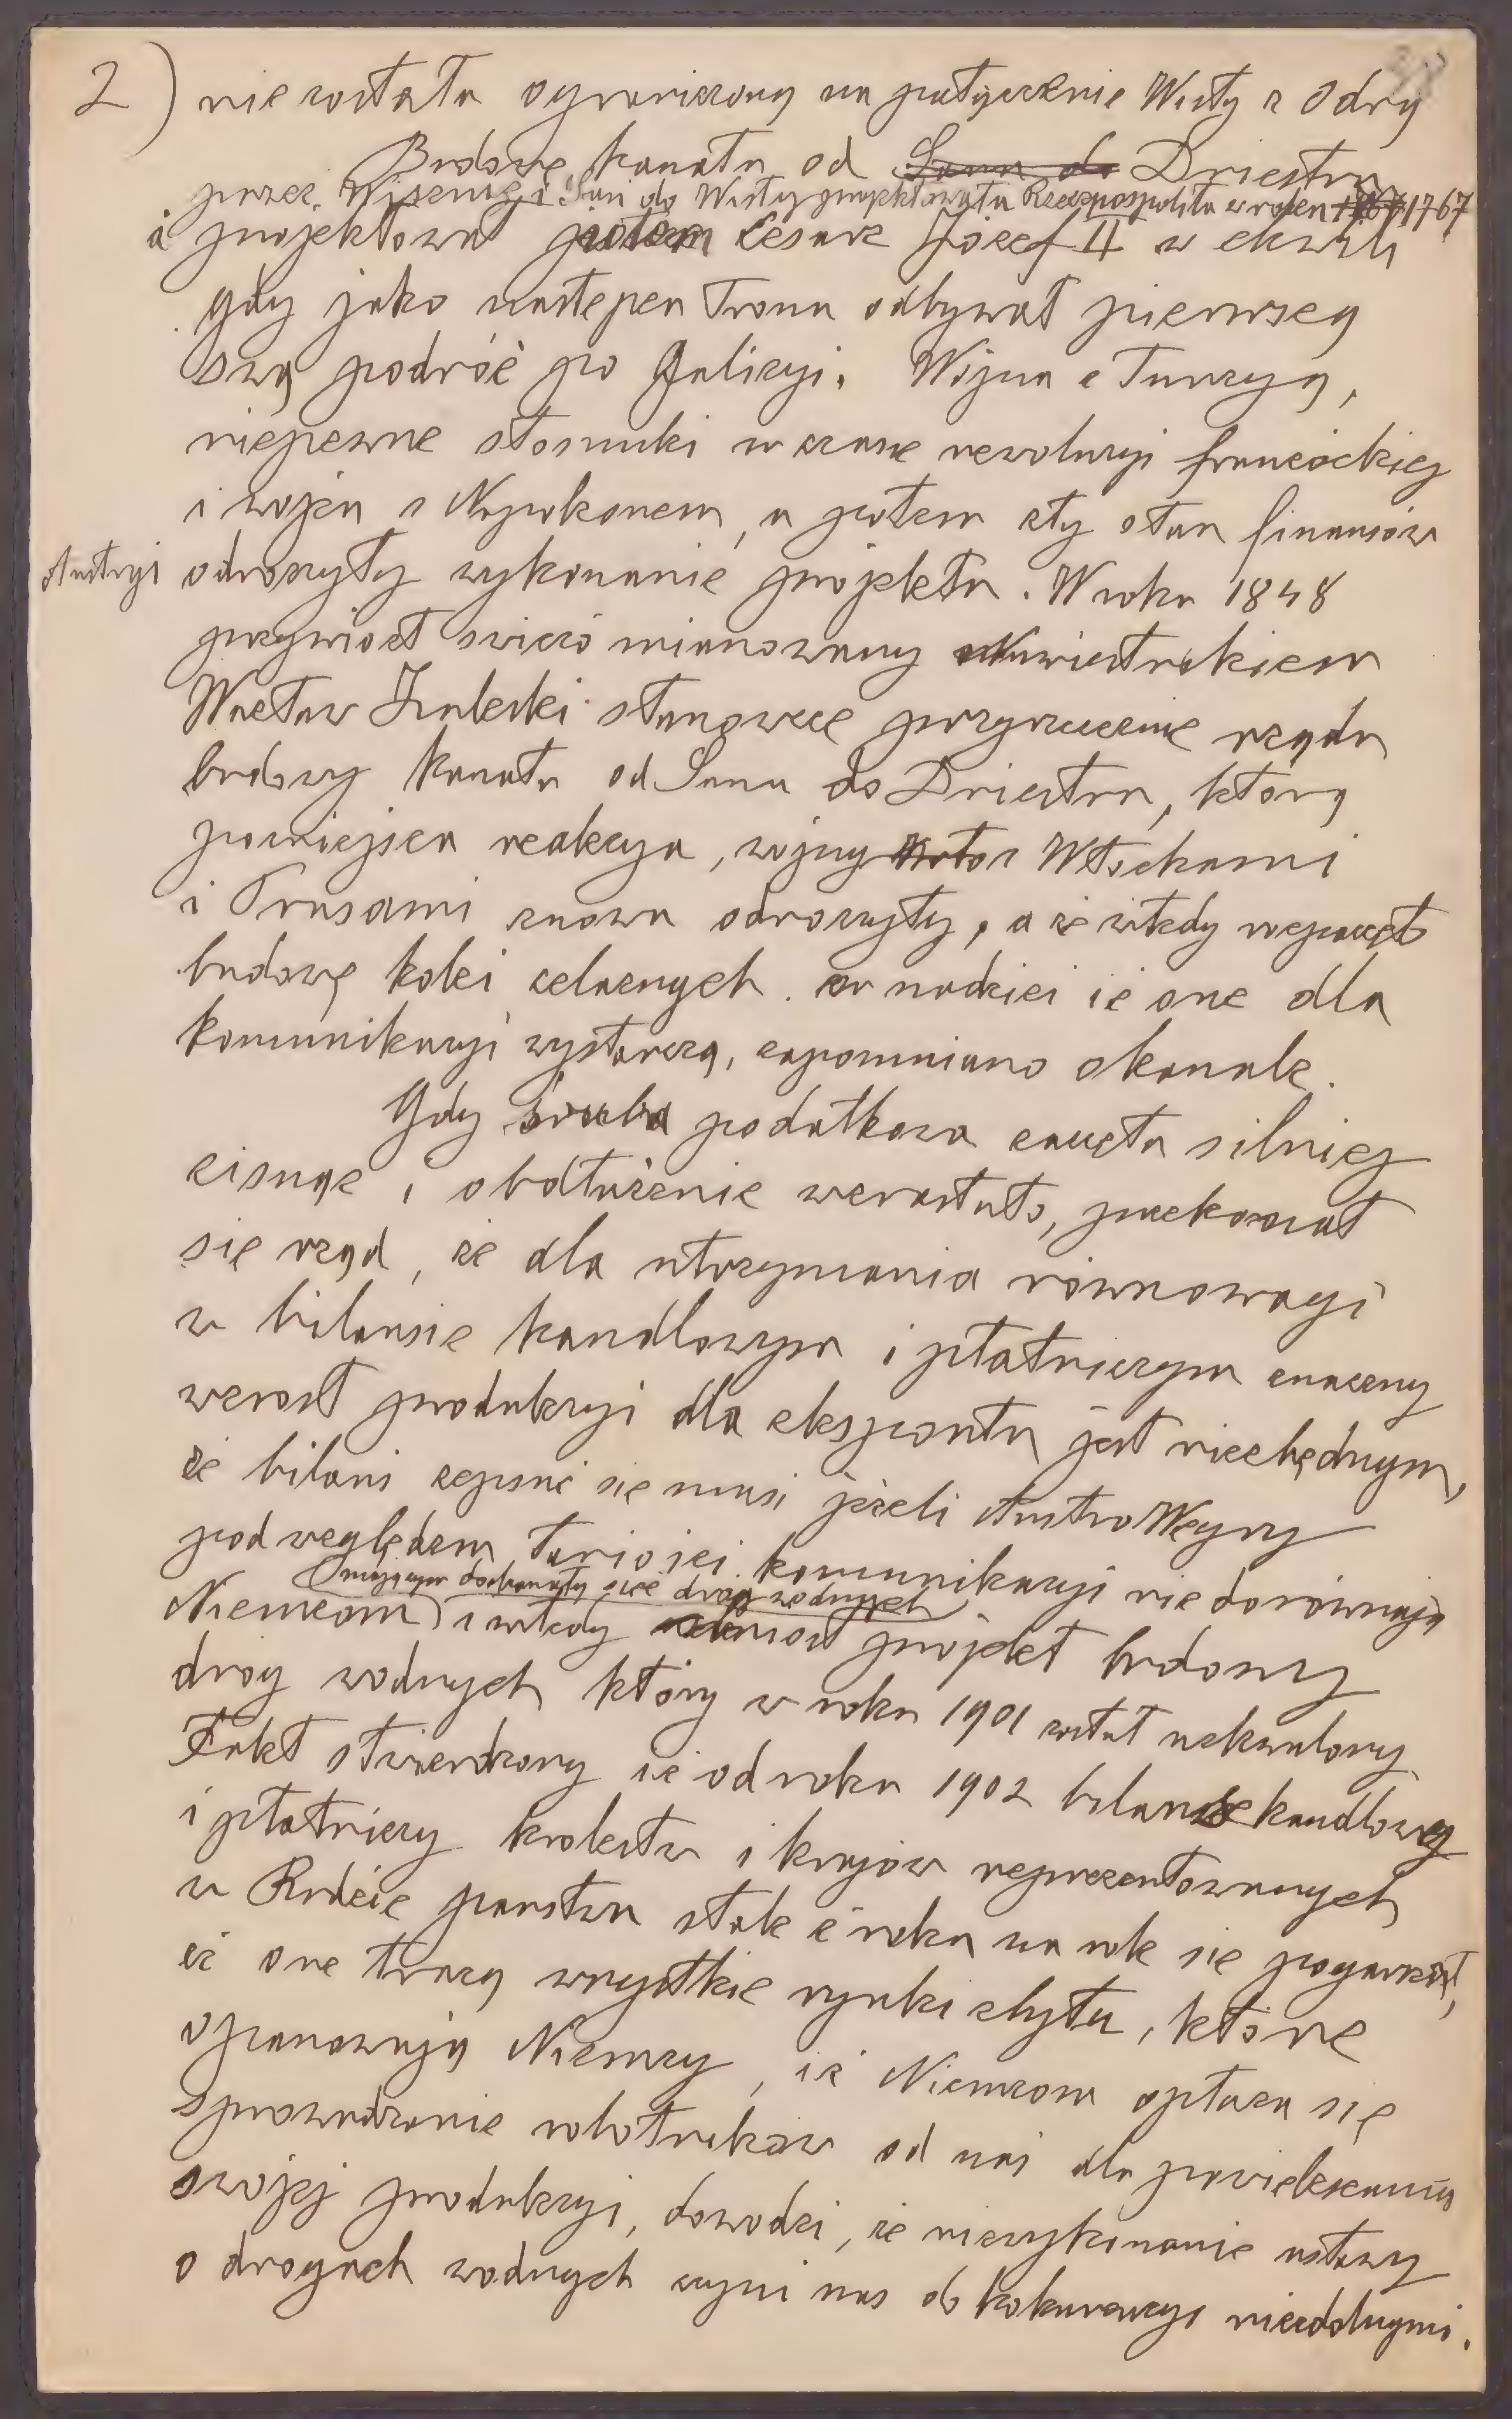 2) nie została ograniczoną na połączenie Wisły z Odrą
Budowę kanału od Sanu do Dniestru
przez Wisznię i San do Wisły projektowała Rzeczpospolita w roku 1767
i projektował potem Cesarz Józef II w chwili
gdy jako następca Tronu odbywał pierwszą
swą podróż po Galicyi. Wojna z Turcyą,
niepewne stosunki w czasie rewolucyi francóckiej
i wojen z Napoleonem, a potem zły stan finansów
Austryi odroczyły wykonanie projektu. W roku 1848
przywiózł świeżo mianowany Namiestnikiem
Wacław Zaleski stanowcze przyrzeczenie rządu
budowy kanału od Sanu do Dniestru, którą
późniejsza reakcya, wojny z Włochami
i Prusami znowu odroczyły, a że wtedy rozpoczęto
budowę kolei żelaznych w nadziei że one dla
komunikacyi wystarczą, zapomniano o kanale.
Gdy śruba podatkowa zaczęła silniej
cisnąć i obdłużenie wzrastało, przekonał
się rząd, że dla utrzymania równowagi
w bilansie handlowym i płatniczym znaczny
wzrost produkcyi dla eksportu jest niezbędnym,
że bilans zepsuć się musi jeżeli Austro Węgry
pod względem taniości komunikacyi nie dorównają
mającym doskonałą sieć dróg wodnych
Niemcom i wtedy wniósł projekt budowy
dróg wodnych który w roku 1901 został uchwalony
Fakt stwierdzony że od roku 1902 bilans handlowy
i płatniczy królestw i krajów reprezentowanych
w Radzie państwa stale z roku na rok się pogarszał,
że one tracą wszystkie rynki zbytu, które
opanowują Niemcy, że Niemcom opłaca się
sprowadzanie robotników od nas dla powiększania
swojej produkcyi, dowodzi, że niewykonanie ustawy
o drogach wodnych czyni nas do kokurencyi niezdolnymi.